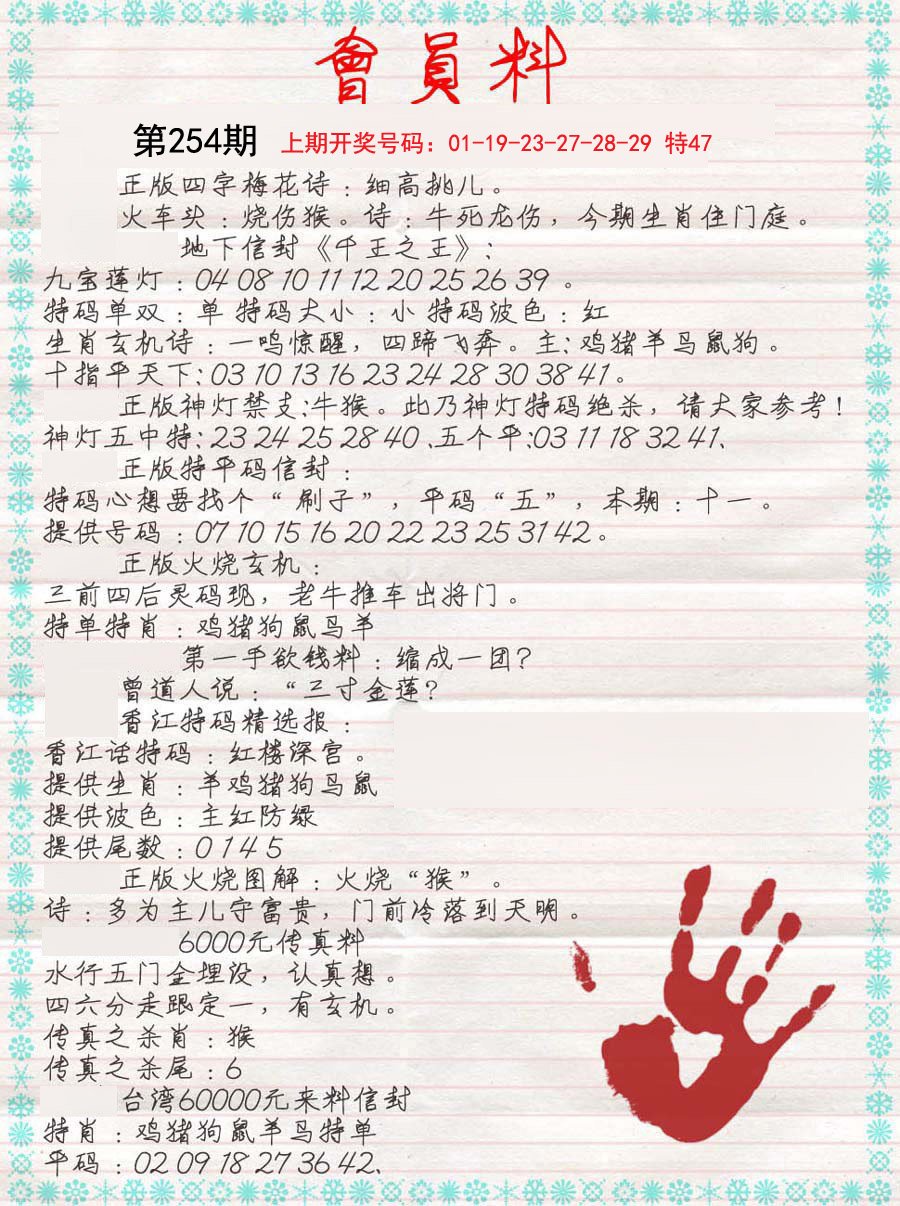 會員料
第254期 上期开奖号码：01-19-23-27-28-29 特47
正版四字梅花诗：细高挑儿。
火车头：烧伤猴。诗：牛死龙伤，今期生肖住门庭。
地下信封《千王之王》：
九宝莲灯：04 08 10 11 12 20 25 26 39 。
特码单双：单 特码大小：小 特码波色：红
生肖玄机诗：一鸣惊醒，四蹄飞奔。主：鸡猪羊马鼠狗。
十指平天下：03 10 13 16 23 24 28 30 38 41。
正版神灯禁支：牛猴。此乃神灯特码绝杀，请大家参考！
神灯五中特：23 24 25 28 40 、五个平：03 11 18 32 41、
正版特平码信封：
特码心想要找个“刷子”，平码“五”，本期：十一。
提供号码：07 10 15 16 20 22 23 25 31 42 。
正版火烧玄机：
三前四后灵码现，老牛推车出将门。
特单特肖：鸡猪狗鼠马羊
第一手欲钱料：缩成一团？
曾道人说：“三寸金莲？
香江特码精选报：
香江话特码：红楼深宫。
提供生肖：羊鸡猪狗马鼠
提供波色：主红防绿
提供尾数：0 1 4 5
正版火烧图解：火烧“猴”。
诗：多为主儿守富贵，门前冷落到天明。
6000元传真料
水行五门金埋没，认真想。
四六分走跟定一，有玄机。
传真之杀肖：猴
传真之杀尾：6
台湾60000元来料信封
特肖：鸡猪狗鼠羊马特单
平码：02 09 18 27 36 42、